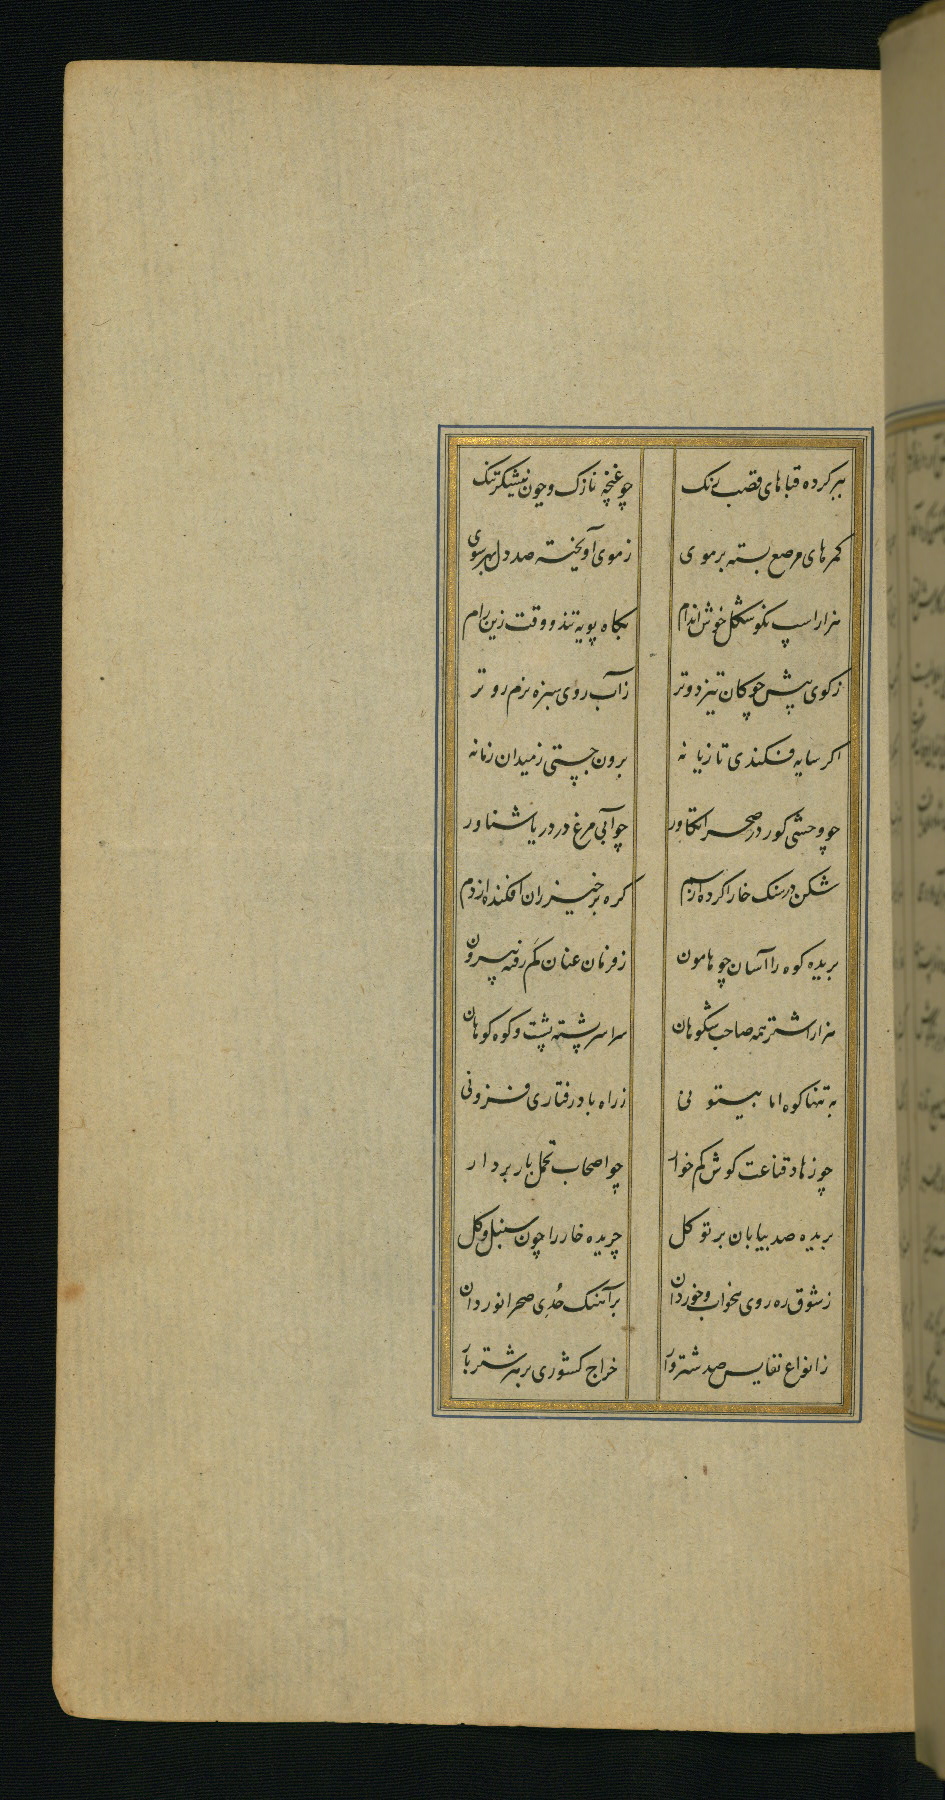 ببر کرده قباهای قصب رنک چو غنچه نازک و چون نیشکر تنک
کمرهای مرصع بسته بر موی ز موی آویخته صد دل بهر سوی
هزار اسپ نکو شکل خوش اندام بکاه پویه تند و وقت زین رام
ز کوی پیش چوکان تیز دوتر ز آب روی سبزه نرم روتر
اکر سایه فکندی تازیانه برون جستی ز میدان زمانه
چو وحشی کور در صحرا تکاور چو آبی مرغ در دریا شناور
شکن در سنک خارا کرده از سم کره بر خیزران افکنده از دم
بریده کوه را آسان چو هامون ز فرمان عنان کم رفته بیرون
هزار اشتر همه صاحب شکوهان سراسر پشته پشت و کوه کوهان
به تنها کوه اما بیستونی ز راه باد رفتاری فزونی
چو زهاد قناعت کوش کم خوار چو اصحاب تحمل بار بردار
بریده صد بیابان بر توکل چریده خار را چون سنبل و کل
ز شوق ره روی بیخواب و خوردان بر آهنک حُدی صحرا نوردان
ز انواع نفایس صد شتروار خراج کشوری بر هر شتر بار